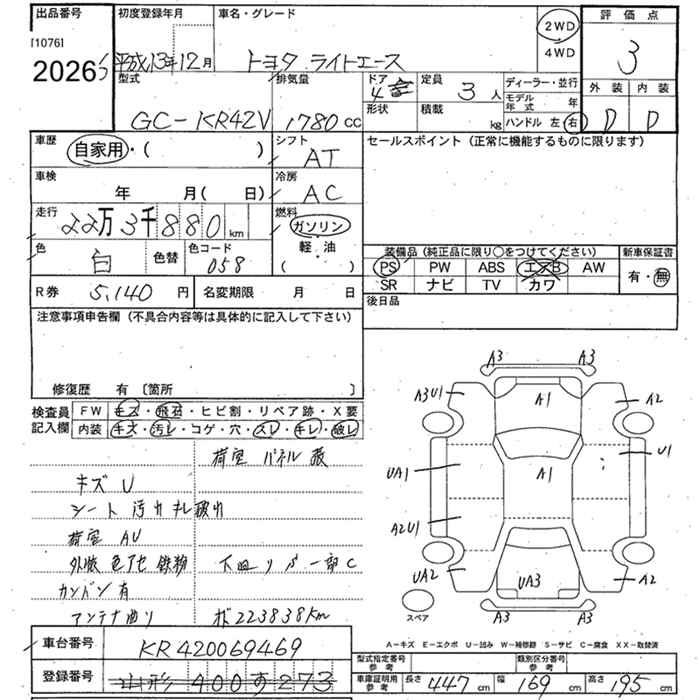 出品番号
[1076]
2026
初度登録年月
平成13年12月
車名・グレード
トヨタ ライトエース
2WD
4WD
評価点
3
外装 内装
D D
型式
GC-KR42V
排気量
1780 cc
ドア
4
形状
定員
3 人
積載
kg
ディーラー・並行
モデル年式 年
ハンドル 左 右
車歴
自家用・( )
シフト
AT
セールスポイント (正常に機能するものに限ります)
車検
年 月( 日)
冷房
AC
走行
22万3千880 km
燃料
ガソリン
軽・油
( )
色
白
色替
色コード
058
装備品 (純正品に限り○をつけてください)
新車保証書
PS PW ABS エアB AW
SR ナビ TV カワ
有・無
R券 5,140 円
名変期限 月 日
後日品
注意事項申告欄 (不具合内容等は具体的に記入して下さい)
修復歴 有 [箇所 ]
検査員記入欄
FW キズ・飛石・ヒビ割・リペア跡・X要
内装 キズ・汚レ・コゲ・穴・スレ・キレ・破レ
荷室 パネル
キズ U
シート 汚れ キレ 破れ
荷室 AU
外板 色アセ 鉄粉
下回り 一部 C
有
アンテナ曲り
223838Km
A3 A3
A3U1 A1 A2
UA1 A1 U1
A2U1
UA2 UA3 A2
A3 A3
スペア
A-キズ E-エクボ U-凹み W-補修跡 S-サビ C-腐食 XX-取替済
車台番号
KR420069469
登録番号
山形 400 す 273
型式指定番号
参考
類別区分番号
参考
車庫証明用
参考
長さ 447 cm 幅 169 cm 高さ 195 cm